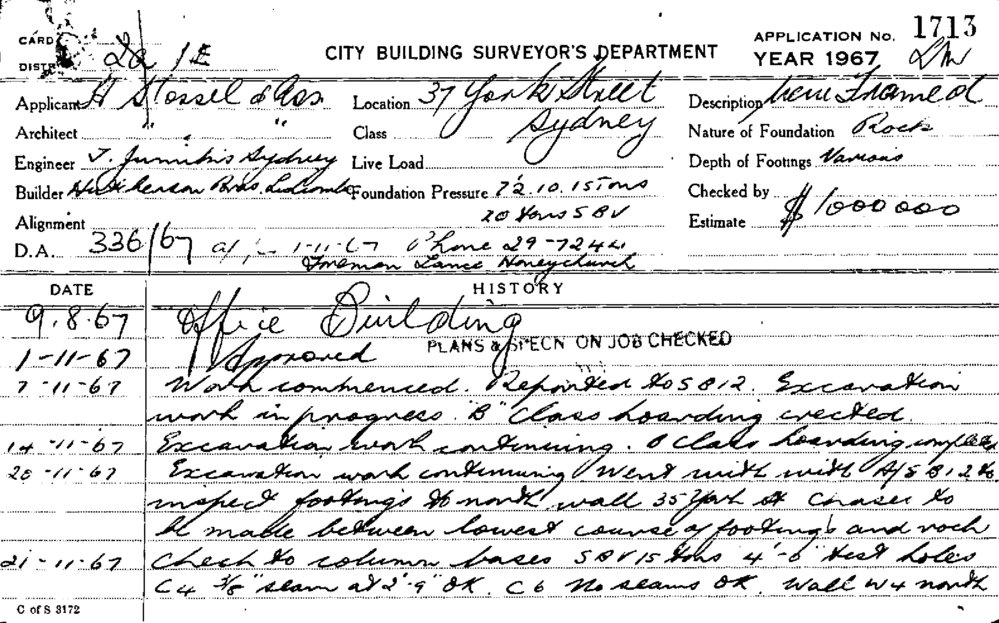 CARD
DIST 2a 1E
CITY BUILDING SURVEYOR'S DEPARTMENT
APPLICATION No. 1713
YEAR 1967
Applicant H Stossel & Ass. Location 37 York Street Description Framed
Architect " " " Class Sydney Nature of Foundation Rock
Engineer Sydney Live Load Depth of Footings Various
Builder Bros. Foundation Pressure 12.10.15 Tons Checked by
Alignment 20 tons S B V Estimate $1000000
D.A. 336/67 1-11-67 Phone 29-7244
Foreman Lance Honeychurch
DATE HISTORY
9.8.67 Office Building
1-11-67 Approved PLANS & SPECN ON JOB CHECKED
7-11-67 Work commenced. Reported to S B 12. Excavation
work in progress. "B" Class hoarding erected.
14-11-67 Excavation work continuing. Class hoarding
20-11-67 Excavation work continuing Went with with A/S B 12 to
inspect footings to north wall 35 York St Chases to
be made between lowest course of footings and rock
21-11-67 Check to column bases S B V 15 tons 4'-6" test holes
C4 3/8" seam at 2'-9" OK. C6 No seams OK. Wall W4 north
C of S 3172